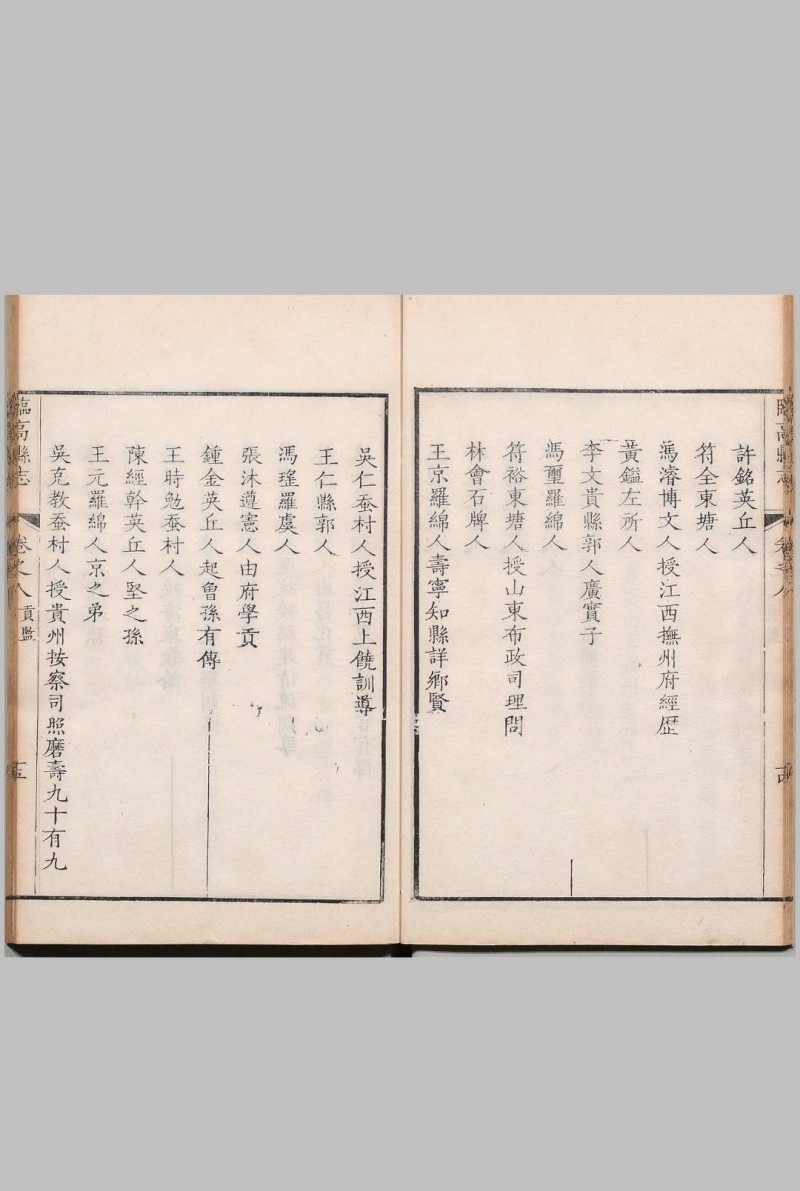 許銘英丘人
符全東塘人
馮濬博文人授江西撫州府經歷
黃鎰左所人
李文貴縣郭人廣實子
馮璽羅綿人
符裕東塘人授山東布政司理問
林會石牌人
王京羅綿人壽寧知縣詳鄉賢
吳仁蚕村人授江西上饒訓導
王仁縣郭人
馮瑤羅虞人
張沐遵憲人由府學貢
鍾金英丘人起曾孫有傳
王時勉蚕村人
陳經幹英丘人堅之孫
王元羅綿人京之弟
吳克教蚕村人授貴州按察司照磨壽九十有九
臨高縣志 卷之八 貢監